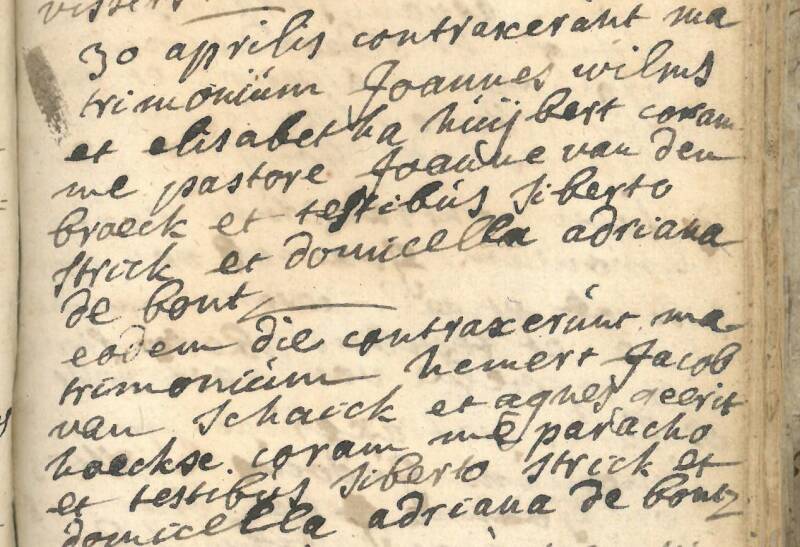 30 aprilis contraxerunt ma
trimoniúm Joannes wilms
et elisabetha huijbert coram
me pastore Joanne van den
broeck et testibús siberto
strick et domicella adriana
de bont
eodem die contraxerúnt ma
trimoniúm hemert Jacob
van schaick et agnes geerit
hoeckse. coram me parocho
et testibús siberto strick et
domicella adriana de bont